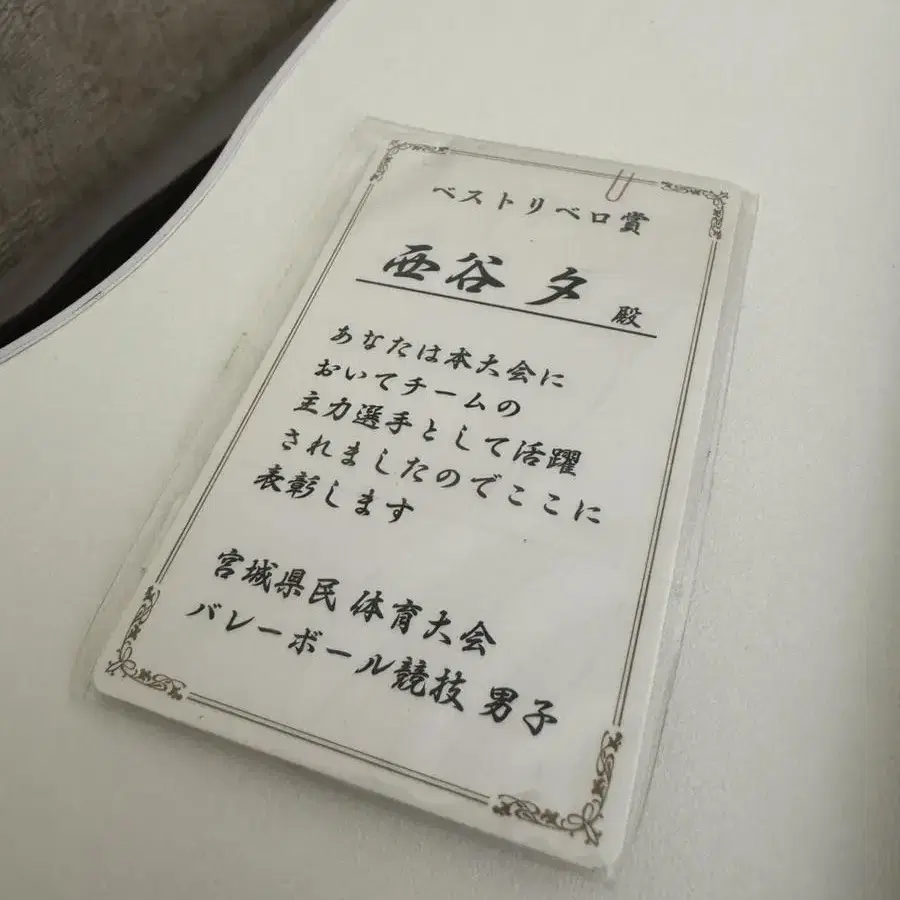 ベストリベロ賞
西谷 夕 殿
あなたは本大会に
おいてチームの
主力選手として活躍
されましたのでここに
表彰します
宮城県民 体育大会
バレーボール競技 男子